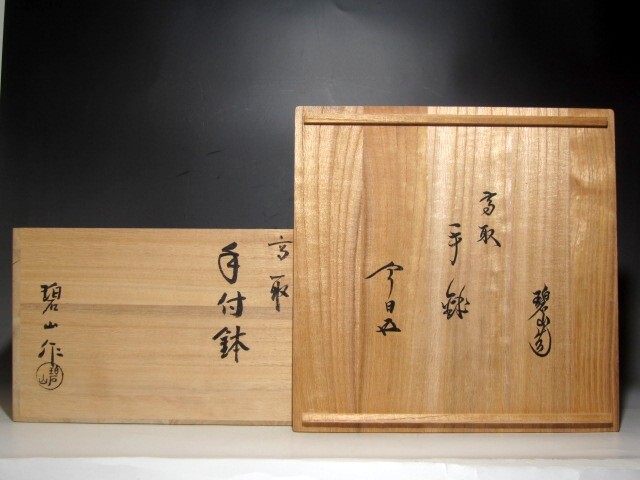 高取
手付鉢
碧山作
碧山
碧山窯
高取
手鉢
今日